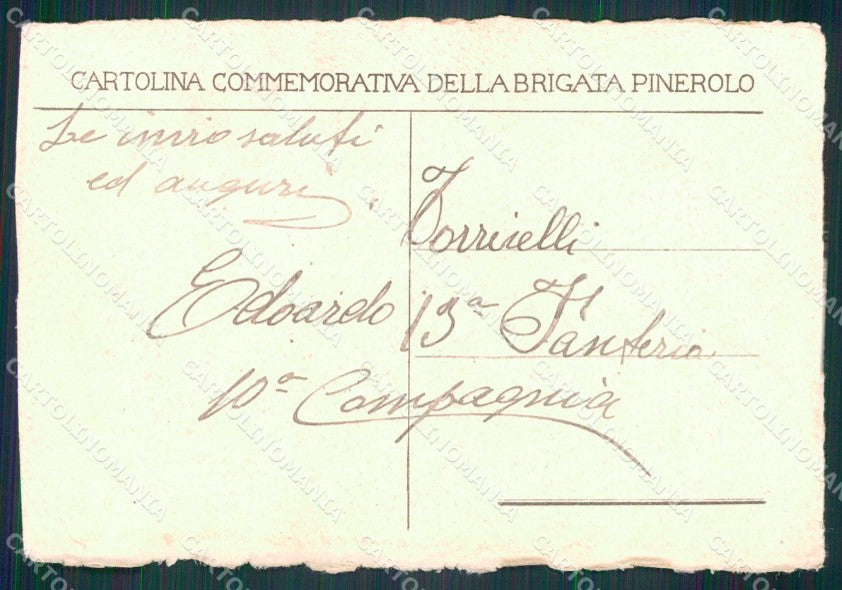 CARTOLINA COMMEMORATIVA DELLA BRIGATA PINEROLO
Le invio saluti
ed auguri
Torricelli
Edoardo 13ª Fanteria
10ª Compagnia
CARTOLINOMANIA